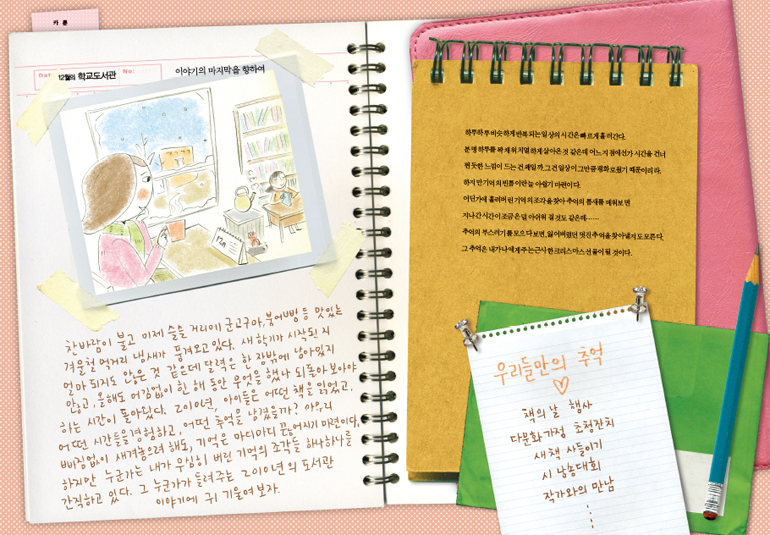 카툰
Dat
12월의 학교도서관
No:
이야기의 마지막을 향하여
찬바람이 불고 이제 슬슬 거리에 군고구마, 붕어빵 등 맛있는
겨울철 먹거리 냄새가 풍겨오고있다. 새 학기가 시작된 지
얼마 되지도 않은 것 같은데 달력은 한 장밖에 남아있지
않고, 올해도 어김없이 한 해 동안 무엇을 했나 되돌아 보아야
하는 시간이 돌아왔다. 2010년, 아이들은 어떤 책을 읽었고,
어떤 시간들을 경험하고, 어떤 추억을 남겼을까? 아무리
빠짐없이 새겨놓으려 해도, 기억은 마디마디 끊어지기 마련이다.
하지만 누군가는 내가 무심히 버린 기억의 조각들 하나하나를
간직하고 있다. 그 누군가가 들려주는 2010년의 도서관
이야기에 귀 기울여 보자.
하루하루 비슷하게 반복되는 일상의 시간은 빠르게 흘러간다.
분명 하루를 꽉 채워 치열하게 살아온 것 같은데 어느 지점에선가 시간을 건너
뛴 듯한 느낌이 드는 건 왜일까. 그건 일상이 그만큼 평화로웠기 때문이리라.
하지만 기억의 빈틈이란 늘 아쉽기 마련이다.
어딘가에 흘려버린 기억의 조각을 찾아 추억의 틈새를 메워보면
지나간 시간이 조금은 덜 아쉬워 질 것도 같은데……
추억의 부스러기를 모으다 보면, 잃어버렸던 멋진 추억을 찾아낼지도 모른다.
그 추억은 내가 나에게 주는 근사한 크리스마스 선물이 될 것이다.
우리들만의 추억
책의 날 행사
다문화가정 초청잔치
새 책 사들이기
시 낭송대회
작가와의 만남